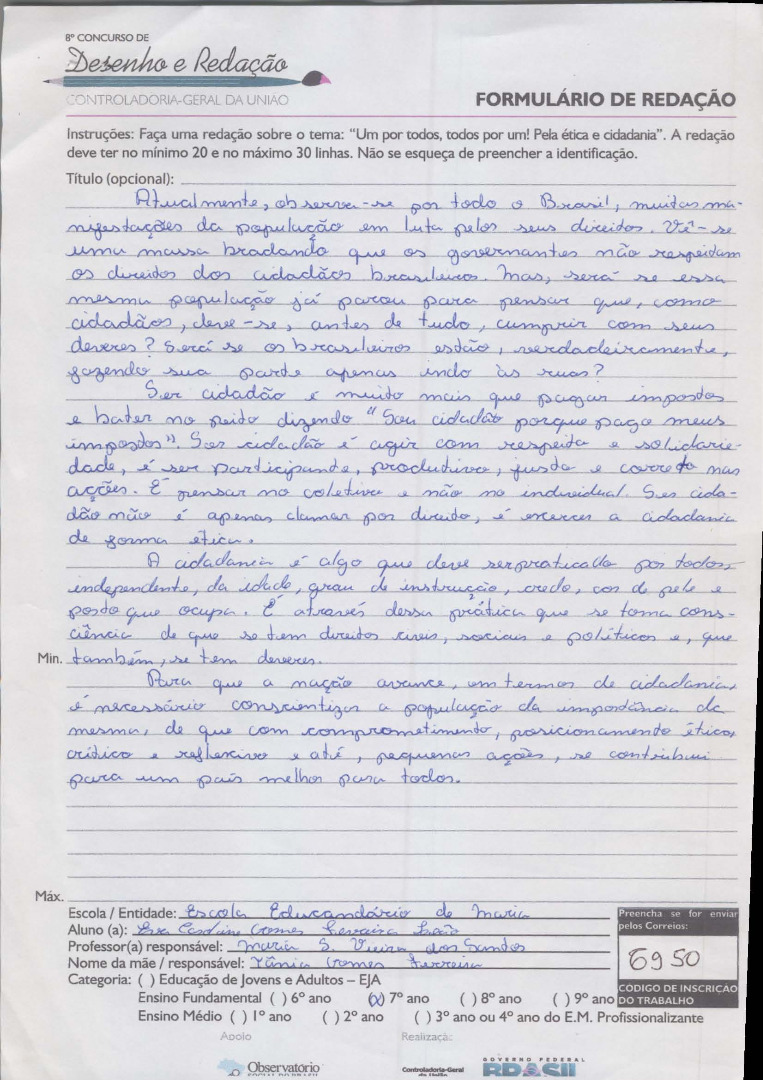 8º CONCURSO DE
Desenho e Redação
CONTROLADORIA-GERAL DA UNIÃO
FORMULÁRIO DE REDAÇÃO
Instruções: Faça uma redação sobre o tema: "Um por todos, todos por um! Pela ética e cidadania". A redação
deve ter no mínimo 20 e no máximo 30 linhas. Não se esqueça de preencher a identificação.
Título (opcional):
Atualmente, observa-se por todo o Brasil, muitas ma-
nifestações da população em luta pelos seus direitos. Vê-se
uma massa bradando que os governantes não respeidam
os direitos dos cidadãos brasileiros. Mas, será se essa
mesma população já parou para pensar que, como
cidadãos, deve-se, antes de tudo, cumprir com seus
deveres? Será se os brasileiros estão, verdadeiramente,
fazendo sua parte apenas indo às ruas?
Ser cidadão é muito mais que pagar impostos
e bater no peito dizendo "Sou cidadão porque pago meus
impostos". Ser cidadão é agir com respeito e solidarie-
dade, é ser participante, produtivo, justo e correto nas
ações. É pensar no coletivo e não no individual. Ser cida-
dão não é apenas clamar por direito, é exercer a cidadania
de forma ética.
A cidadania é algo que deve ser praticado por todos,
independente, da idade, grau de instrução, credo, cor de pele e
posto que ocupa. É através dessa prática que se toma cons-
ciência de que se tem direitos civis, sociais e políticos e, que
Min. também, se tem deveres.
Para que a nação avance, em termos de cidadania,
é necessário conscientizar a população da importância da
mesma, de que com comprometimento, posicionamento ético,
crítico e reflexivo e até, pequenas ações, se contribui
para um país melhor para todos.
Máx.
Escola / Entidade: Escola Educandário de Maria
Aluno (a): Gomes Ferreira
Professor(a) responsável: Maria S. Vieira dos Santos
Nome da mãe / responsável: Tânia Gomes Ferreira
Preencha se for enviar
pelos Correios:
6950
CÓDIGO DE INSCRIÇÃO
DO TRABALHO
Categoria: ( ) Educação de Jovens e Adultos – EJA
Ensino Fundamental ( ) 6º ano (x) 7º ano ( ) 8º ano ( ) 9º ano
Ensino Médio ( ) 1º ano ( ) 2º ano ( ) 3º ano ou 4º ano do E.M. Profissionalizante
Apoio
Realização:
Observatório
SOCIAL DO BRASIL
Controladoria-Geral
da União
GOVERNO FEDERAL
BRASIL